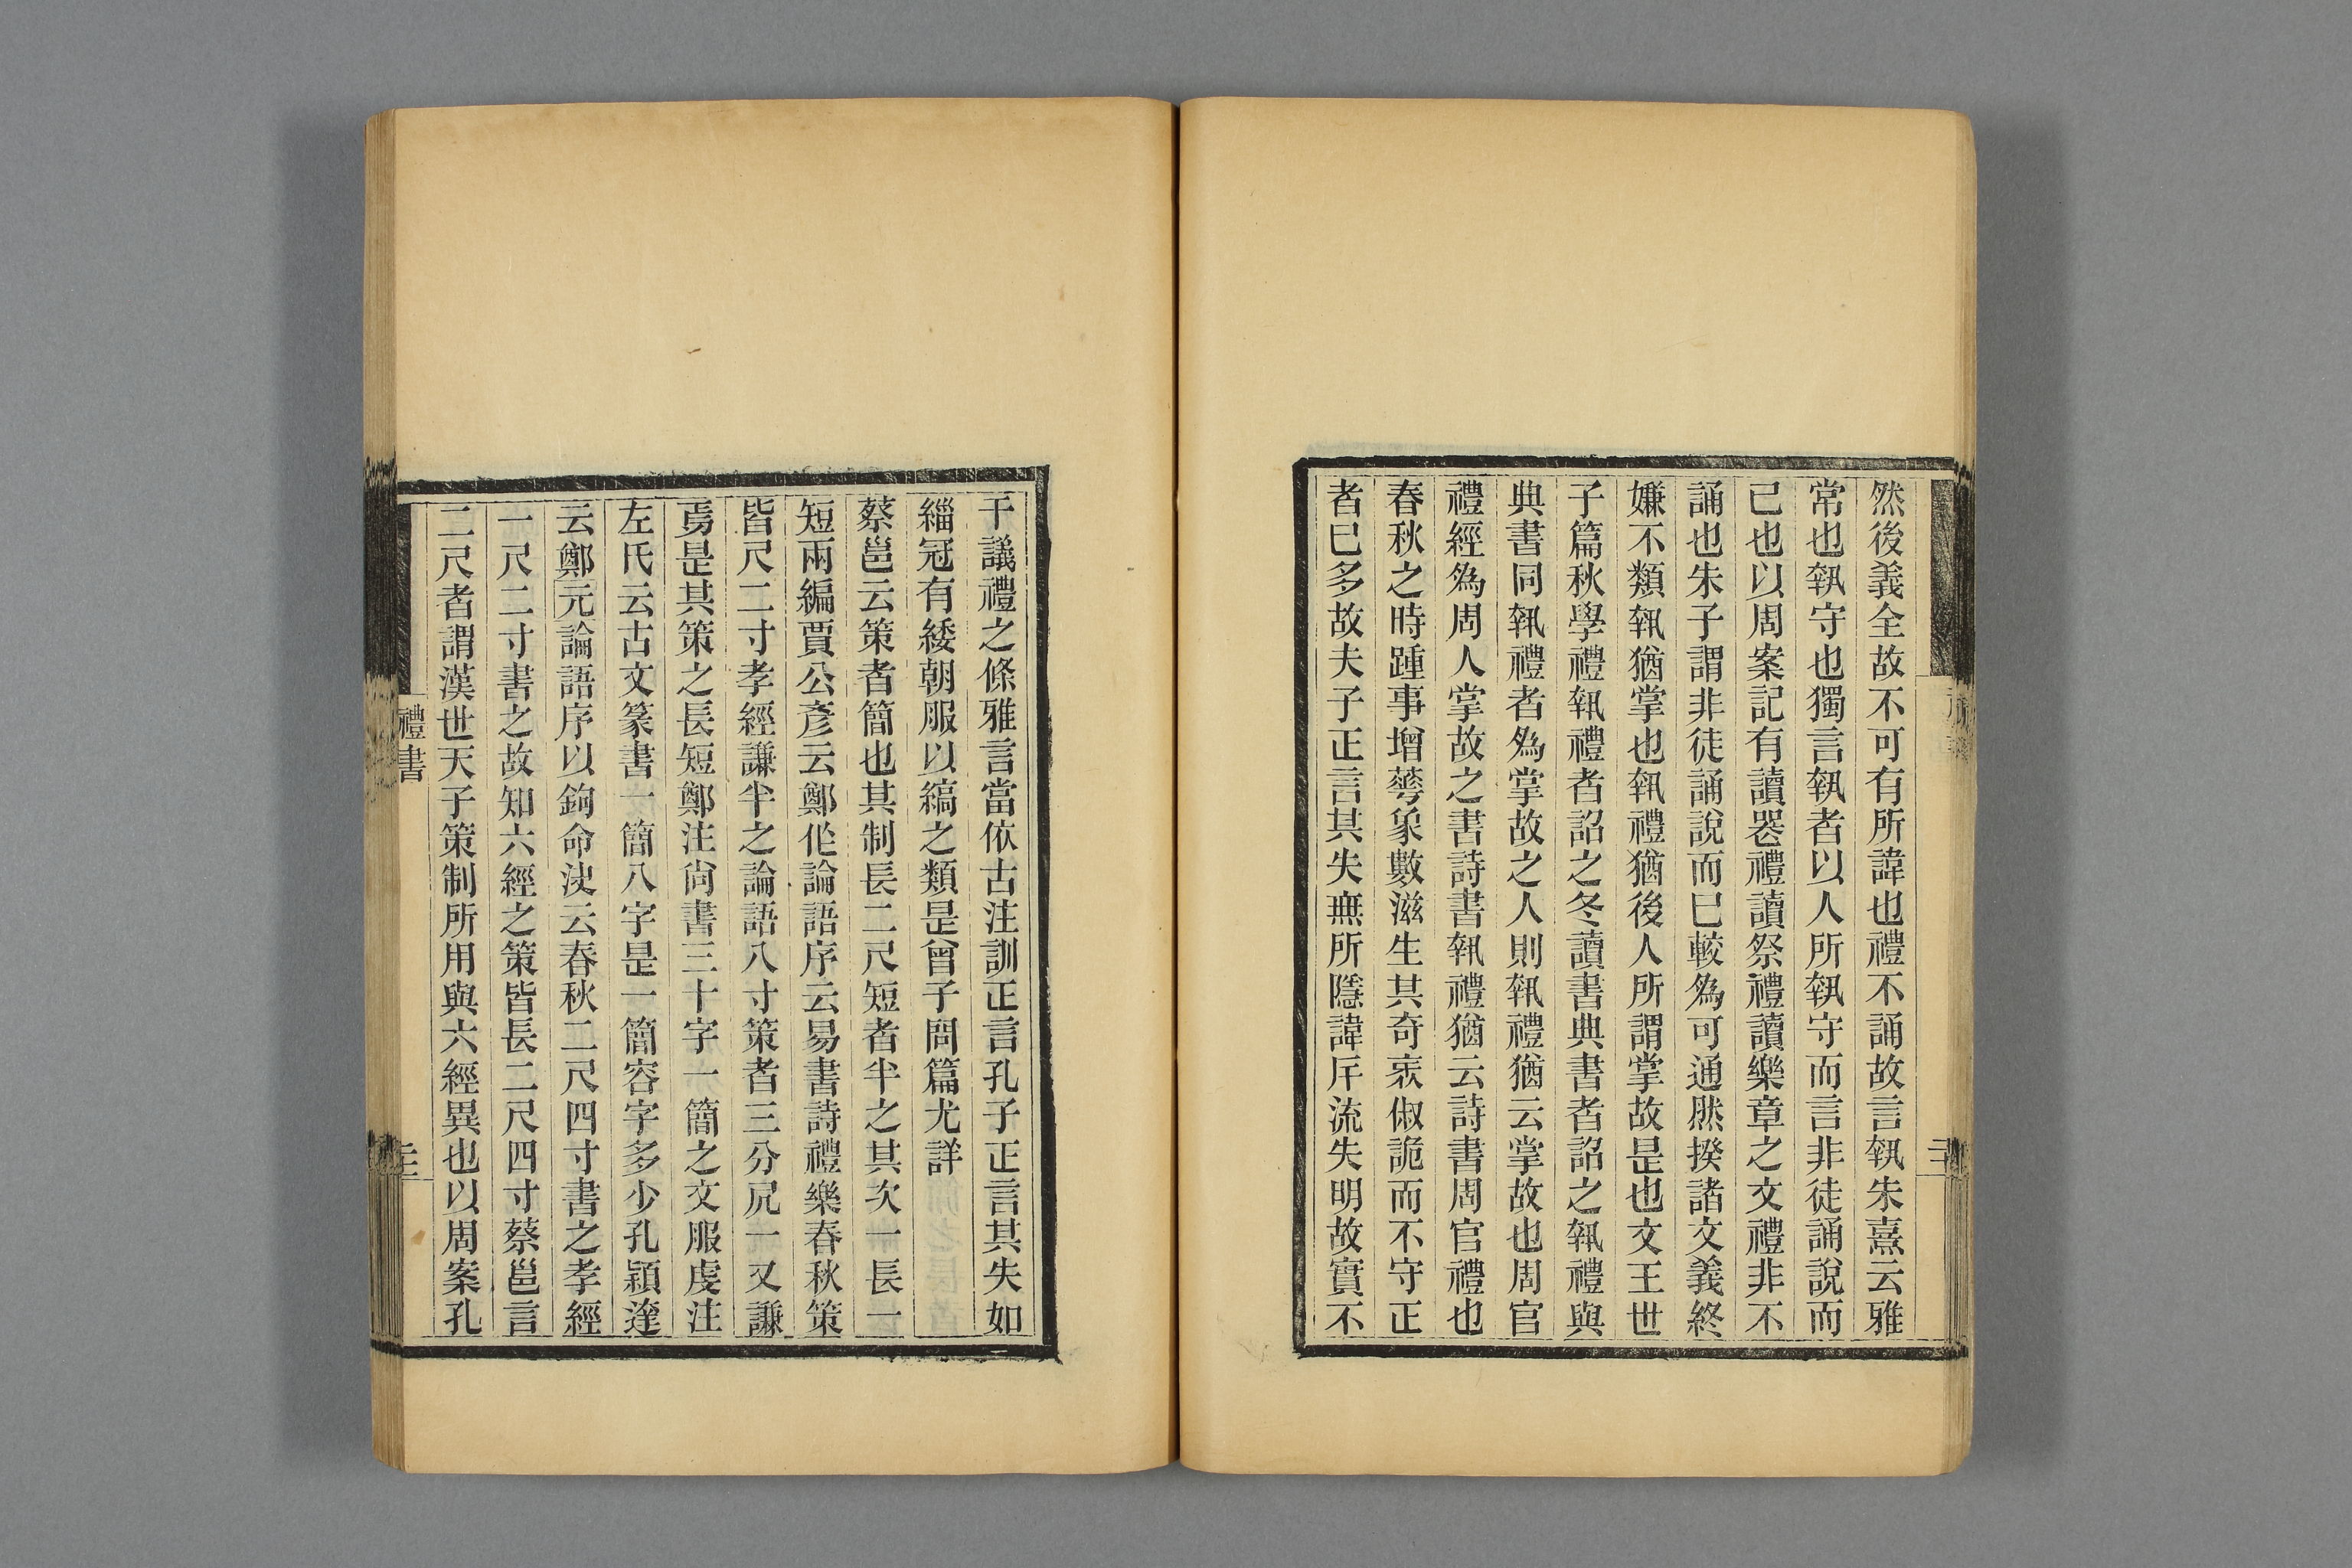 然後義全故不可有所諱也禮不誦故言執朱熹云雅
常也執守也獨言執者以人所執守而言非徒誦說而
已也以周案記有讀喪禮讀祭禮讀樂章之文禮非不
誦也朱子謂非徒誦說而已較為可通然揆諸文義終
嫌不類執猶掌也執禮猶後人所謂掌故是也文王世
子篇秋學禮執禮者詔之冬讀書典書者詔之執禮與
典書同執禮者為掌故之人則執禮猶云掌故也周官
禮經為周人掌故之書詩書執禮猶云詩書周官禮也
春秋之時踵事增蕚象數滋生其奇衺俶詭而不守正
者已多故夫子正言其失無所隱諱斥流失明故實不
干議禮之條雅言當依古注訓正言孔子正言其失如
緇冠有緌朝服以縞之類是曾子問篇尤詳
蔡邕云策者簡也其制長二尺短者半之其次一長一
短兩編賈公彥云鄭作論語序云易書詩禮樂春秋策
皆尺二寸孝經謙半之論語八寸策者三分尻一又謙
焉是其策之長短鄭注尚書三十字一簡之文服虔注
左氏云古文篆書一簡八字是一簡容字多少孔穎達
云鄭元論語序以鉤命決云春秋二尺四寸書之孝經
一尺二寸書之故知六經之策皆長二尺四寸蔡邕言
二尺者謂漢世天子策制所用與六經異也以周案孔
禮書